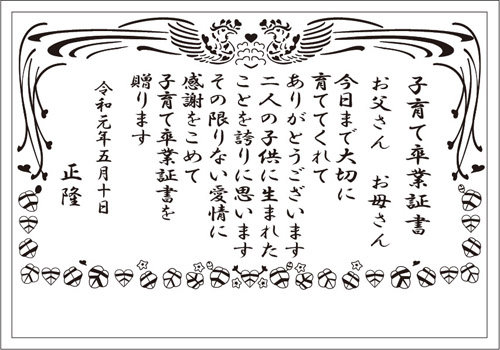 子育て卒業証書
お父さん　お母さん
今日まで大切に
育ててくれて
ありがとうございます
二人の子供に生まれた
ことを誇りに思います
その限りない愛情に
感謝をこめて
子育て卒業証書を
贈ります
令和元年五月十日
正隆